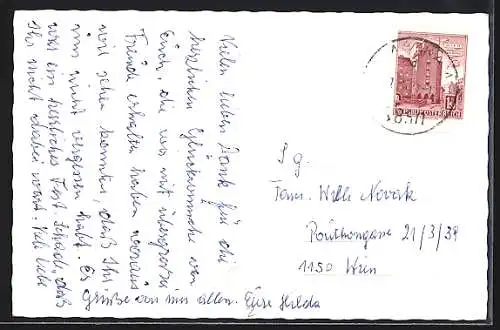 Vielen lieben Dank für die
herzlichen Glückwünsche von
Euch, die wir mit übergrosser
Freude erhalten haben, woraus
wir sehen konnten, daß Ihr
uns nicht vergessen habt. Es
war ein herrliches Fest. Schade, daß
Ihr nicht dabei wart. Viele liebe
Grüße von uns allen. Eure Hilda
Fam. Willi Novak
21/3/39
1150 Wien
REPUBLIK ÖSTERREICH